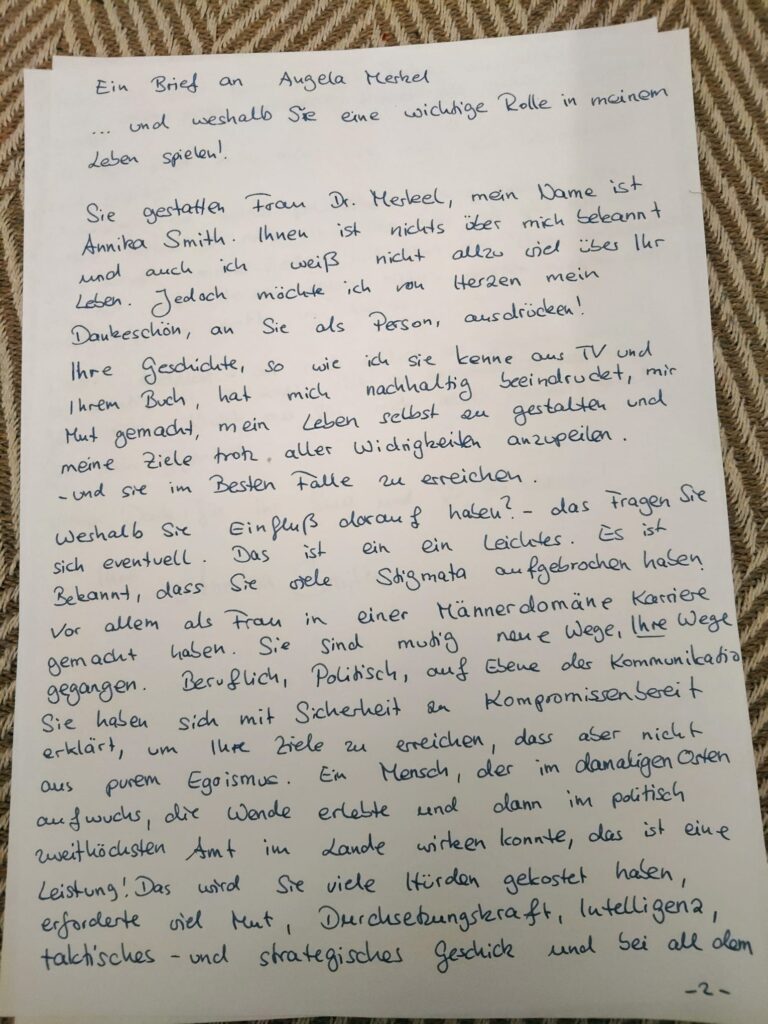 Ein Brief an Angela Merkel
... und weshalb Sie eine wichtige Rolle in meinem
Leben spielen!
Sie gestatten Frau Dr. Merkel, mein Name ist
Annika Smith. Ihnen ist nichts über mich bekannt
und auch ich weiß nicht allzu viel über Ihr
Leben. Jedoch möchte ich von Herzen mein
Dankeschön, an Sie als Person, ausdrücken!
Ihre Geschichte, so wie ich sie kenne aus TV und
Ihrem Buch, hat mich nachhaltig beeindruckt, mir
Mut gemacht, mein Leben selbst zu gestalten und
meine Ziele trotz aller Widrigkeiten anzupeilen.
- und sie im Besten Falle zu erreichen.
Weshalb Sie Einfluß darauf haben? - das Fragen Sie
sich eventuell. Das ist ein ein Leichtes. Es ist
Bekannt, dass Sie viele Stigmata aufgebrochen haben
Vor allem als Frau in einer Männerdomäne Karriere
gemacht haben. Sie sind mutig neue Wege, Ihre Wege
gegangen. Beruflich, Politisch, auf Ebene der Kommunikatio
Sie haben sich mit Sicherheit zu Kompromissenbereit
erklärt, um Ihre Ziele zu erreichen, dass aber nicht
aus purem Egoismus. Ein Mensch, der im damaligen Osten
aufwuchs, die Wende erlebte und dann im politisch
zweithöchsten Amt im Lande wirken konnte, das ist eine
Leistung! Das wird Sie viele Hürden gekostet haben,
erforderte viel Mut, Durchsetzungskraft, Intelligenz,
taktisches - und strategisches Geschick und bei all dem
-2-